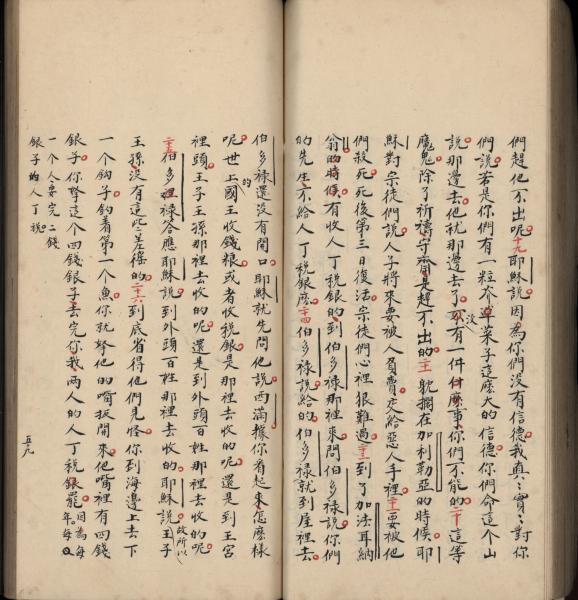 們趕他不出呢十九耶穌説因為你們沒有信德我真〻實〻對你
們説若是你們有一粒芥草菜子這麽大的信德你們命這个山
説那邊去他就那邊去了沒有一件什麽事你們不能的二十這等
魔鬼除了祈禱守齋是趕不出的二一躭擱在加利勒亞的時候耶
穌對宗徒們説人子將來要被人負賣交給惡人手裡二二要被他
們殺死死後第三日復活宗徒們心裡很難過二三到了加法耳納
翁的時候有收人丁税銀的到伯多祿那裡來問伯多祿説你們
的先生不給人丁税銀麽二四伯多祿説給的伯多祿就到屋裡去
伯多祿還没有開口耶穌就先問他説西滿據你看起來怎麽樣
呢世上的國王收錢粮或者收税銀是那裡去收的呢還是到王宮
裡頭王子王孫那裡去收的呢還是到外頭百姓那裡去收的呢
二五伯多祿答應耶穌説到外頭百姓那裡去收的耶穌説所以王子
王孫没有這些差徭的二六到底省得他們見怪你到海邊上去下
一个鈎子釣着第一个魚你就拏他的嘴扳開來他嘴裡有四錢
銀子你拏這个四錢銀子去完你我両人的人丁税銀罷因為每年每
一个人要完二錢
銀子的人丁税
五九